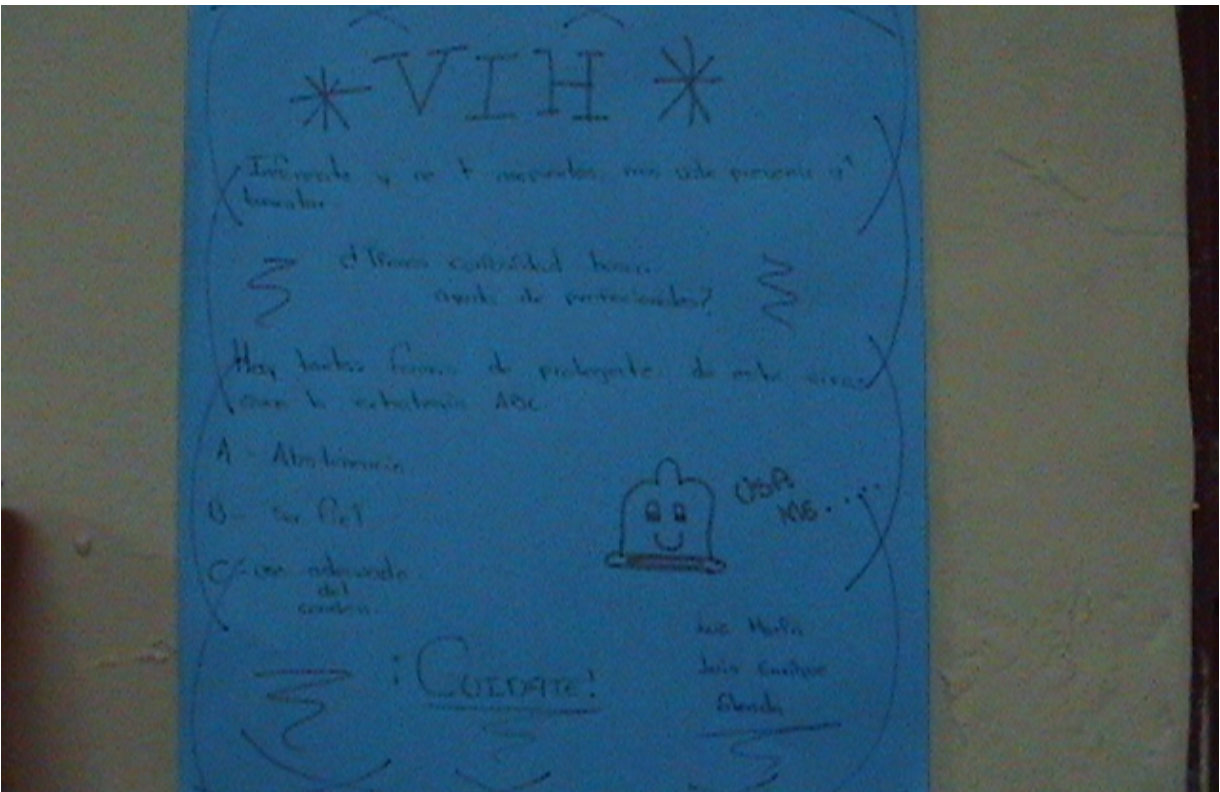 VIH
Informate y no t arrepientas, mas vale prevenir q'
lamentar.
¿Tienes curiosidad busca
ayuda de profesionales?
Hay tantas formas de protegerte de este virus
como la estrategia ABC.
A - Abstinencia
B - Ser fiel
C - uso adecuado
del
condon.
USA
ME.....
¡CUIDATE!
Luis
Luis Enrique